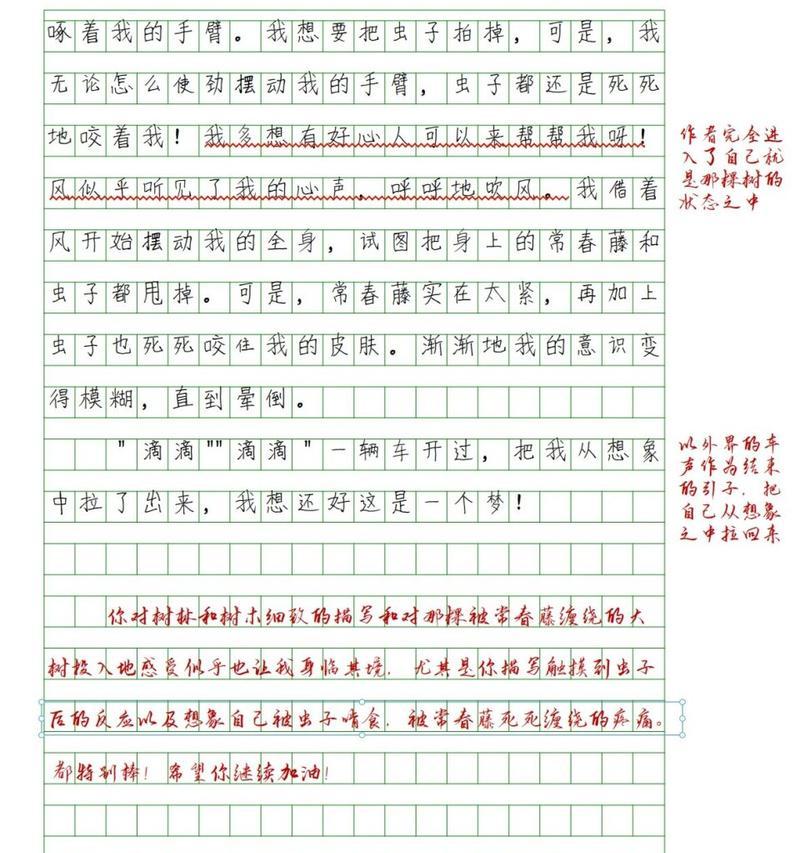 啄着我的手臂。我想要把虫子拍掉，可是，我
无论怎么使劲摆动我的手臂，虫子都还是死死
地咬着我！我多想有好心人可以来帮帮我呀！
风似乎听见了我的心声，呼呼地吹风。我借着
风开始摆动我的全身，试图把身上的常春藤和
虫子都甩掉。可是，常春藤实在太紧，再加上
虫子也死死咬住我的皮肤。渐渐地我的意识变
得模糊，直到晕倒。
"滴滴""滴滴"一辆车开过，把我从想象
中拉了出来，我想还好这是一个梦！
作者完全进
入了自己就
是那棵树的
状态之中
以外界的车
声作为结束
的引子，把
自己从想象
之中拉回来
你对树林和树木细致的描写和对那棵被常春藤缠绕的大
树投入地感受似乎也让我身临其境，尤其是你描写触摸到虫子
后的反应以及想象自己被虫子啃食，被常春藤死死缠绕的疼痛。
都特别棒！希望你继续加油！